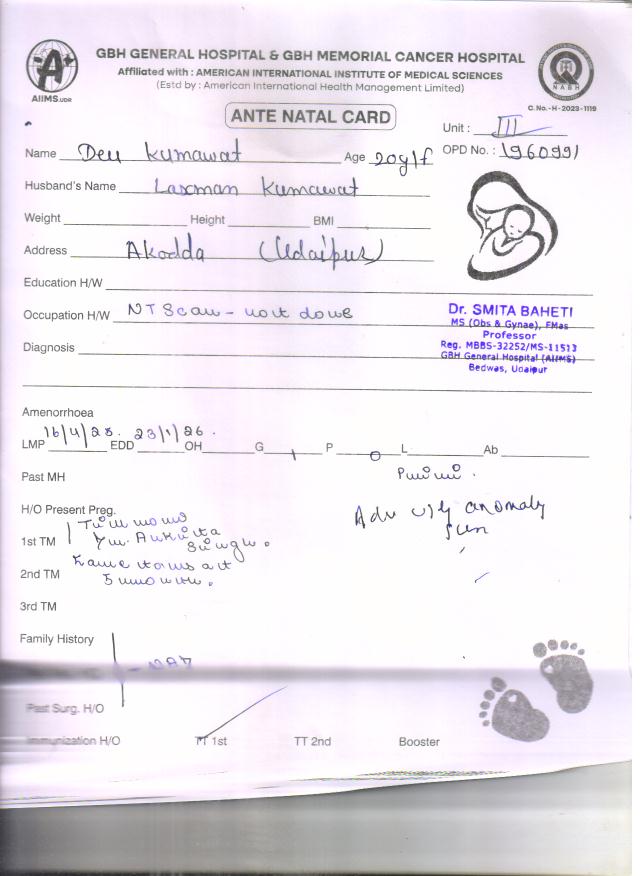 GBH GENERAL HOSPITAL & GBH MEMORIAL CANCER HOSPITAL
Affiliated with : AMERICAN INTERNATIONAL INSTITUTE OF MEDICAL SCIENCES
(Estd by : American International Health Management Limited)
AIIMS.UDR
NABH
C. No.- H - 2023 - 1119
ANTE NATAL CARD
Unit : III
Name Deu Kumawat Age 20y/f OPD No. : 1960991
Husband's Name Laxman Kumawat
Weight Height BMI
Address Akodda (Udaipur)
Education H/W
Occupation H/W NT Scan - not done
Diagnosis
Dr. SMITA BAHETI
MS (Obs & Gynae), FMas
Professor
Reg. MBBS-32252/MS-11513
GBH General Hospital (AIIMS)
Bedwas, Udaipur
Amenorrhoea
LMP 16/4/25. EDD 23/1/26. OH G 1 P 0 L Ab
Past MH Primi.
H/O Present Preg.
Adv anomaly
1st TM
2nd TM
3rd TM
Family History
NAD
Past Surg. H/O
Immunization H/O TT 1st TT 2nd Booster